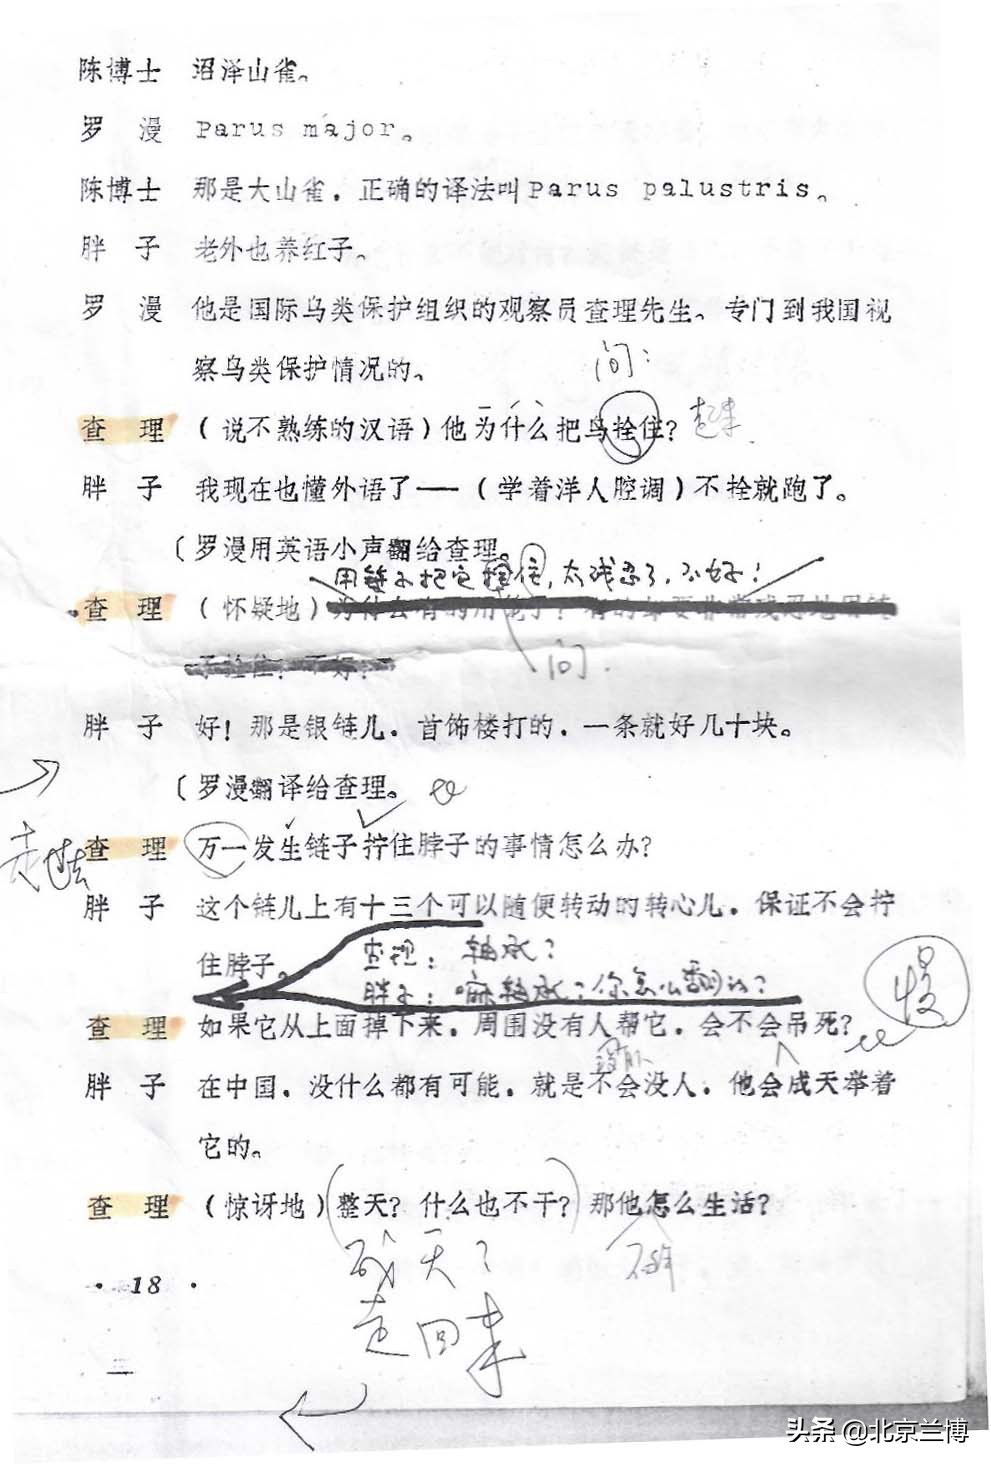 陈博士 沼泽山雀。
罗漫 Parus major。
陈博士 那是大山雀，正确的译法叫Parus palustris。
胖子 老外也养红子。
罗漫 他是国际鸟类保护组织的观察员查理先生、专门到我国视
察鸟类保护情况的。
问：
查理 （说不熟练的汉语）他为什么把鸟拴住？ 起来
胖子 我现在也懂外语了——（学着洋人腔调）不拴就跑了。
〔罗漫用英语小声翻给查理。
用链子把它拴住，太残忍了，不好！
查理 （怀疑地）
问
胖子 好！那是银链儿，首饰楼打的，一条就好几十块。
〔罗漫翻译给查理。
查理 万一发生链子拧住脖子的事情怎么办？
胖子 这个链儿上有十三个可以随便转动的转心儿，保证不会拧
住脖子。
查理：轴承？
胖子：嘛轴承？你怎么翻的？
慢
查理 如果它从上面掉下来，周围没有人帮它，会不会吊死？
胖子 在中国，没什么都有可能，就是不会没人，他会成天举着
它的。
查理 （惊讶地）整天？什么也不干？那他怎么生活？
成天？
走回来
·18·
头条 @北京兰博